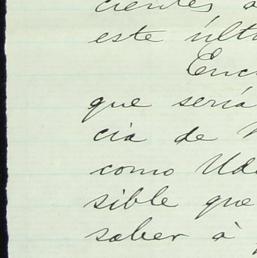 cientes a
este últ
Enc
que sería
cia de
como Ud
sible que
saber à